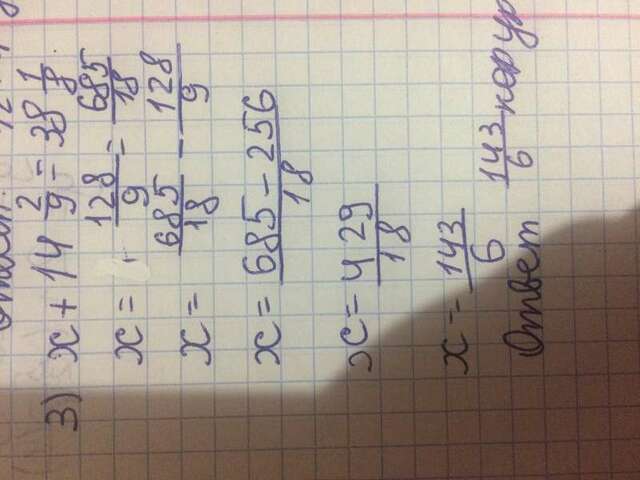 3) x + 14 2/9 = 38 1/8
x = 128/9 = 685/18
x = 685/18 - 128/9
x = 685 - 256 / 18
x = 429/18
x = 143/6
Ответ 143/6